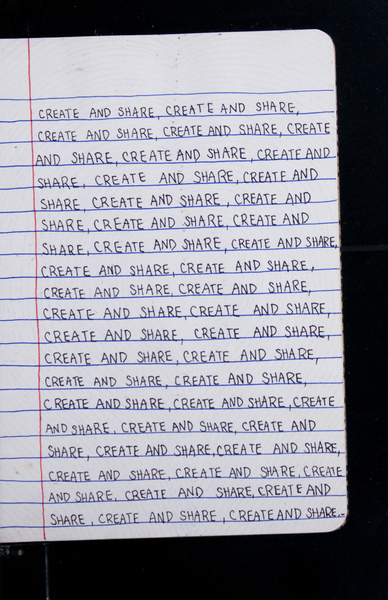 CREATE AND SHARE, CREATE AND SHARE,
CREATE AND SHARE, CREATE AND SHARE, CREATE
AND SHARE, CREATE AND SHARE, CREATE AND
SHARE, CREATE AND SHARE, CREATE AND
SHARE, CREATE AND SHARE, CREATE AND
SHARE, CREATE AND SHARE, CREATE AND
SHARE, CREATE AND SHARE, CREATE AND SHARE,
CREATE AND SHARE, CREATE AND SHARE,
CREATE AND SHARE, CREATE AND SHARE,
CREATE AND SHARE, CREATE AND SHARE,
CREATE AND SHARE, CREATE AND SHARE,
CREATE AND SHARE, CREATE AND SHARE,
CREATE AND SHARE, CREATE AND SHARE,
CREATE AND SHARE, CREATE AND SHARE, CREATE
AND SHARE, CREATE AND SHARE, CREATE AND
SHARE, CREATE AND SHARE, CREATE AND SHARE,
CREATE AND SHARE, CREATE AND SHARE, CREATE
AND SHARE, CREATE AND SHARE, CREATE AND
SHARE, CREATE AND SHARE, CREATE AND SHARE...